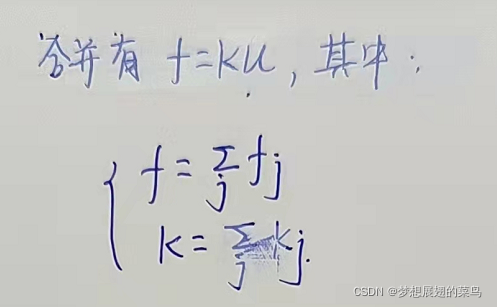 合并有 f=Ku, 其中:
f=∑j fj
K=∑j Kj.
CSDN @梦想展翅的菜鸟